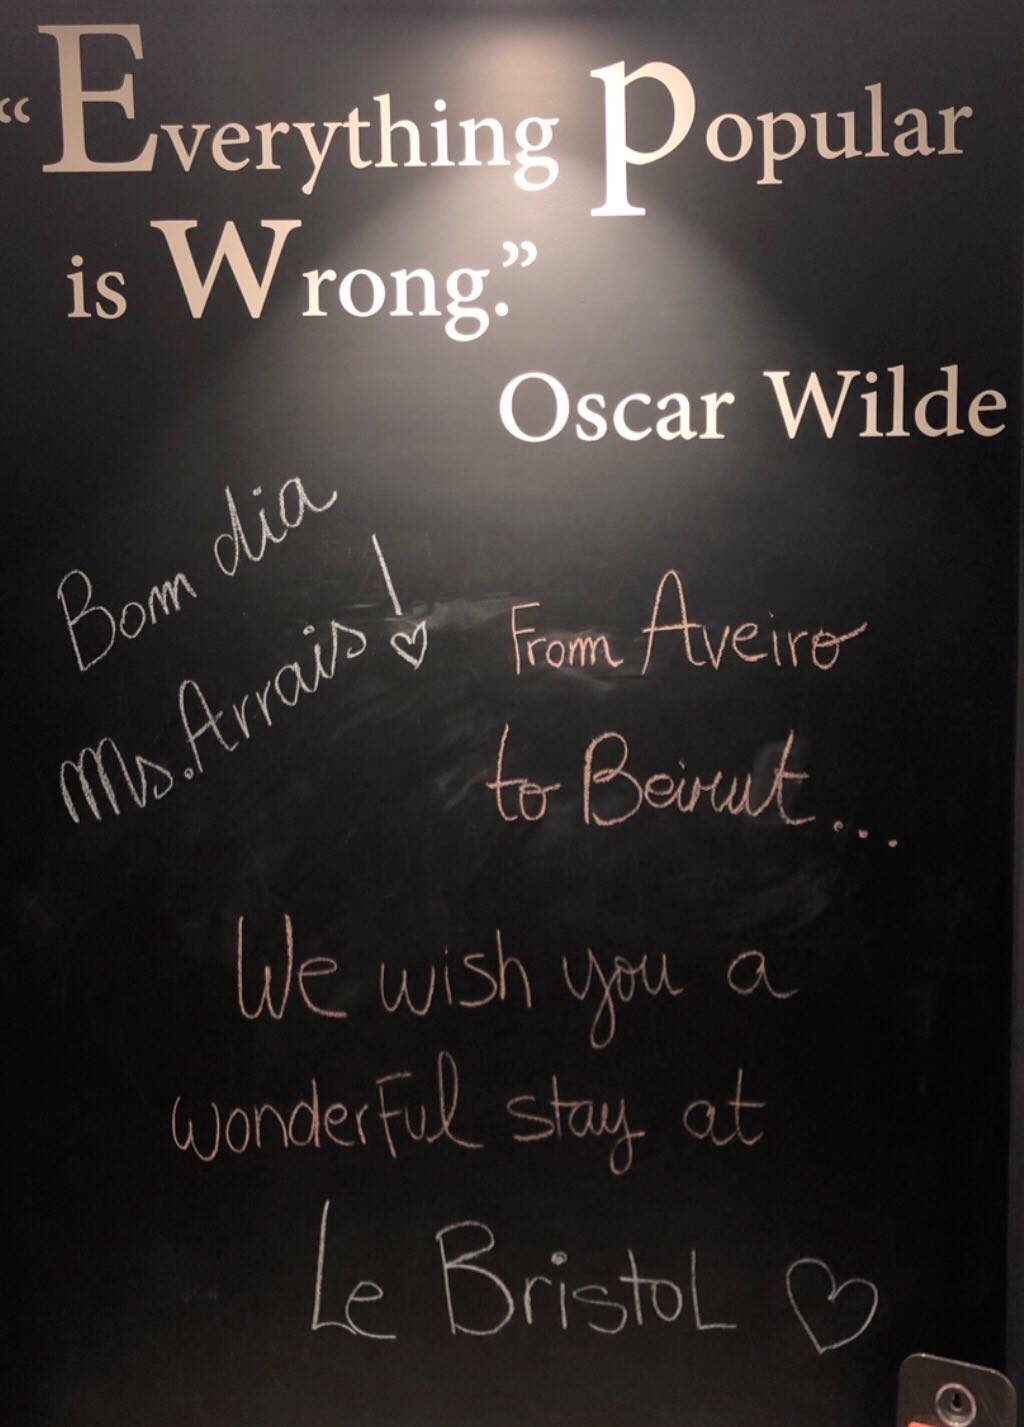 “Everything Popular
is Wrong.”
Oscar Wilde
Bom dia
Ms. Arrais!
From Aveiro
to Beirut...
We wish you a
wonderful stay at
Le Bristol